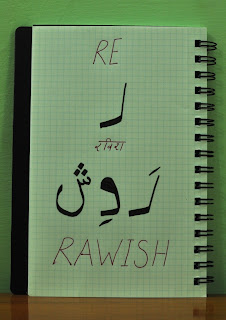 RE
ر
रविश
رَوِش
RAWISH